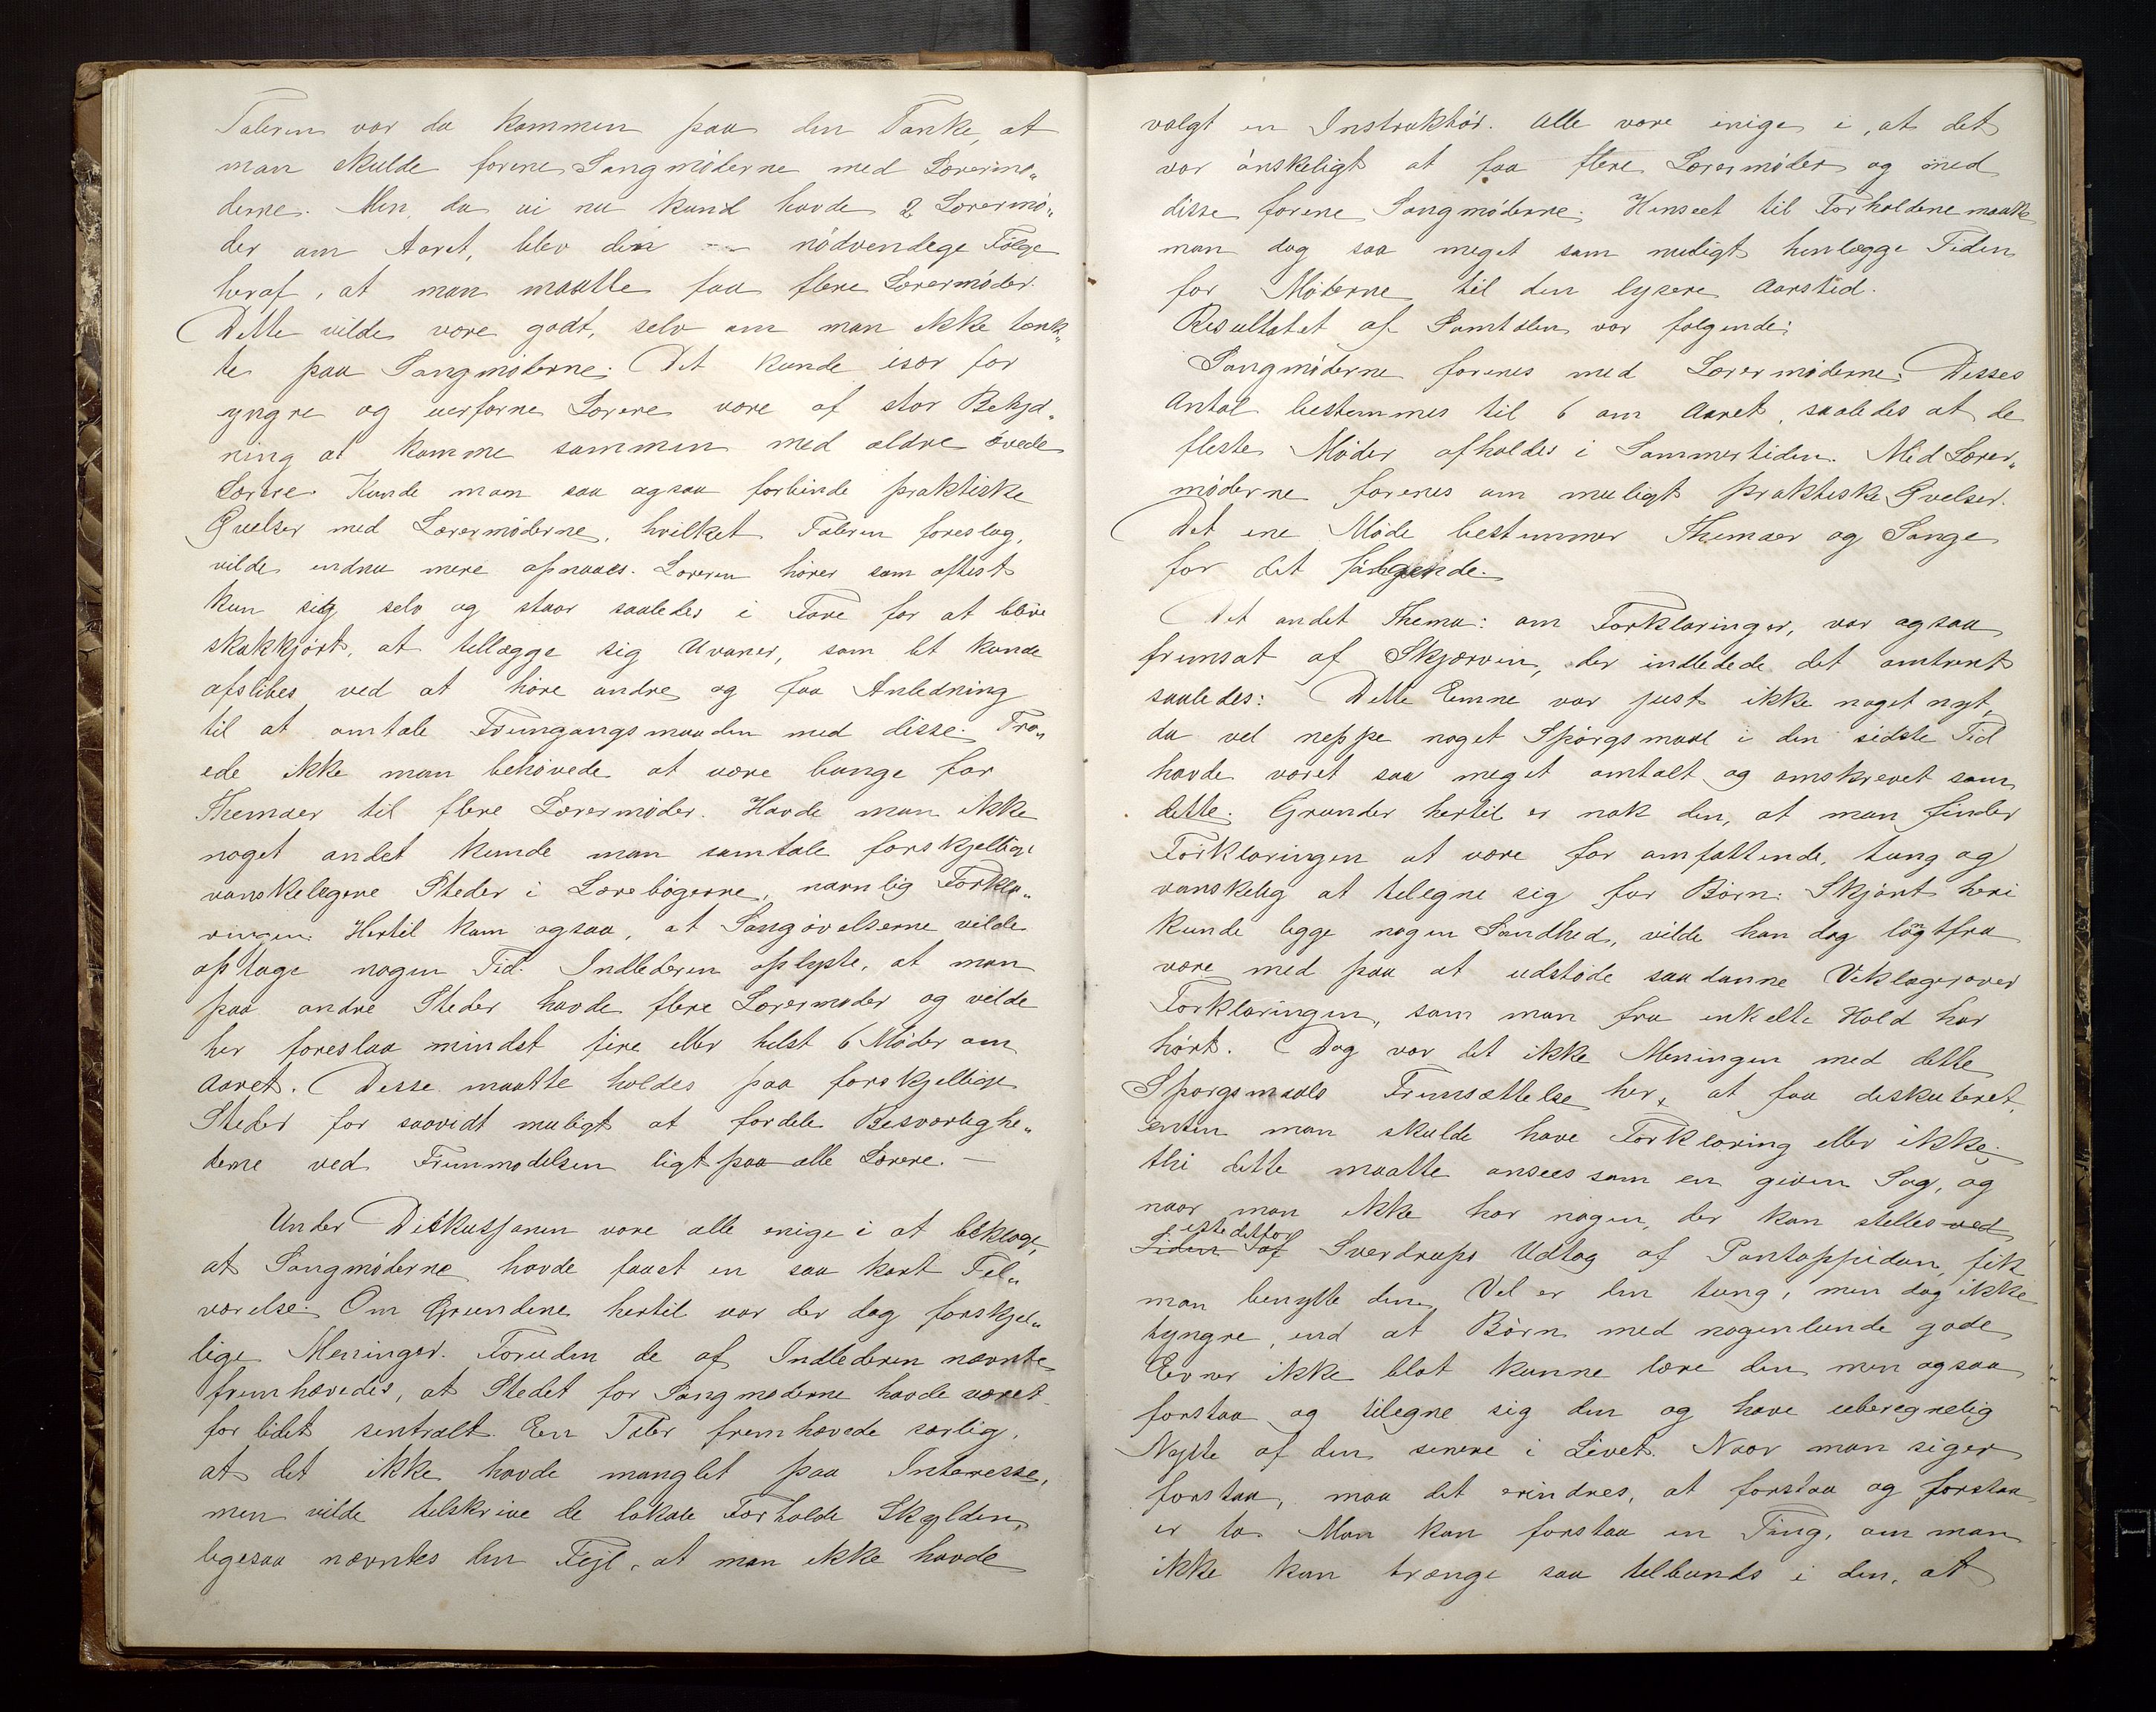 Taleren var da kommen paa den Tanke, at
man skulde forene Sangmøderne med Lærermø„
derne. Men da vi nu kund havde 2 Lærermø„
der om Aaret, blev den -- nødvendige Følge
heraf, at man maatte faa flere Lærermøder.
Dette vilde være godt, selv om man ikke tænk„
te paa Sangmøderne. Det kunde især for
yngre og uerfarne Lærere være af stor Betyd„
ning at komme sammen med ældre øvede
Lærere. Kunde man saa ogsaa forbinde praktiske
Øvelser med Lærermøderne, hvilket Taleren foreslog,
vilde endnu mere opnaaes. Læreren hører som oftest
kun sig selv og staar saaledes i Fare for at blive
skakkjørt, at tillægge sig Uvaner, som let kunde
afslibes ved at høre andre og faa Anledning
til at omtale Fremgangsmaaden med disse. Tro„
ede ikke man behøvede at være bange for
Themaer til flere Lærermøder. Havde man ikke
noget andet kunde man samtale forskjellige
vanskeligere Steder i Lærebøgerne, navnlig Forkla„
ringen. Hertil kom ogsaa, at Sangøvelserne vilde
optage nogen Tid. Indlederen oplyste, at man
paa andre Steder havde flere Lærermøder og vilde
her foreslaa mindst fire eller helst 6 Møder om
Aaret. Disse maatte holdes paa forskjellige
Steder for saavidt muligt at fordele Besværlighe„
derne ved Fremmødelsen ligt paa alle Lærere. —
Under Diskussjonen vare alle enige i at beklage,
at Sangmøderne havde faaet en saa kort Til„
værelse. Om Grundene hertil var der dog forskjel„
lige Meninger. Foruden de af Indlederen nævnte
fremhævedes, at Stedet for Sangmøderne havde været
for lidet sentralt. En Taler fremhævede særlig,
at det ikke havde manglet paa Interesse,
men vilde tilskrive de lokale Forholde Skylden,
ligesaa nævntes den Fejl, at man ikke havde
valgt en Instruktør. Alle vare enige i, at det
var ønskeligt at faa flere Lærermøder og med
disse forene Sangmøderne. Henseet til Forholdene maatte
man dog saa meget som muligt henlægge Tiden
for Møderne til den lysere Aarstid.
Resultatet af Samtalen var følgende:
Sangmøderne forenes med Lærermøderne. Disses
Antal bestemmes til 6 om Aaret, saaledes at de
fleste Møder afholdes i Sommertiden. Med Lærer„
møderne forenes om muligt praktiske Øvelser.
Det ene Møde bestemmer Themaer og Sange
for det følgende.
Det andet Thema: om Forklaringer, var ogsaa
fremsat af Skjærvin, der indledede det omtrent
saaledes: Dette Emne var just ikke noget nyt,
da vel neppe noget Spørgsmaal i den sidste Tid
havde været saa meget omtalt og omskrevet som
dette. Grunden hertil er nok den, at man finder
Forklaringen at være for omfattende, tung og
vanskelig at tilegne sig for Børn. Skjønt heri
kunde ligge nogen Sandhed, vilde han dog langtfra
være med paa at udstøde saadanne Veklager over
Forklaringen, som man fra enkelte Hold har
hørt. Dog var det ikke Meningen med dette
Spørgsmaals Fremsættelse her, at faa diskuteret,
enten man skulde have Forklaring eller ikke,
thi dette maatte ansees som en given Sag, og
naar man ikke har nogen, der kan stilles ved
istedetfor
Siden af Sverdrups Udtog af Pontoppidan, fik
man benytte den. Vel er den tung, men dog ikke
tyngre, end at Børn med nogenlunde gode
Evner ikke blot kunne lære den men ogsaa
forstaa og tilegne sig den og have uberegnelig
Nytte af den senere i Livet. Naar man siger
forstaa, maa det erindres, at forstaa og forstaa
er to. Man kan forstaa en Ting, om man
ikke kan trænge saa tilbunds i den, at